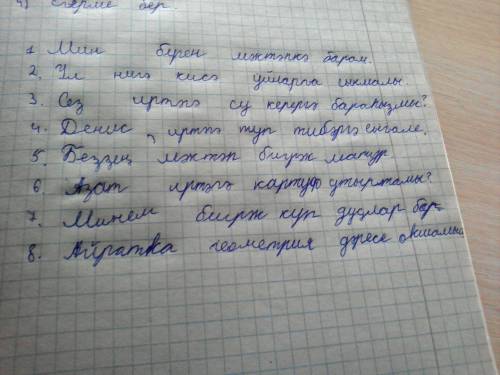 4) егерме бер
1 Мин бөгөн мәктәпкә барам.
2. Ул нигә кисә уйнарға сыкманы.
3. Сез иртәгә су керергә бараһызмы?
4. Денис, иртәгә туп тибергә сығәле.
5. Беззең мәктәп бигрәк матур
6. Азат иртәгә картуф утыртамы?
7. Минем бигрәк күп дуҫлар бар
8. Айратка геометрия дәресе оҡшамый